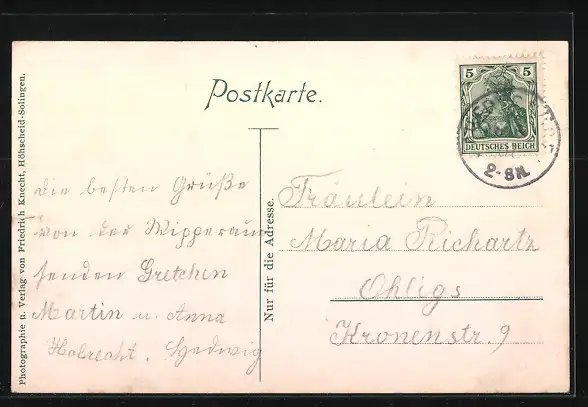 Postkarte.
5 5
DEUTSCHES REICH
2-3N.
Photographie u. Verlag von Friedrich Knecht, Höhscheid-Solingen.
Nur für die Adresse.
die besten Grüße
von der Wipperaue
senden Gretchen
Martin u. Anna
Hedwig
Fräulein
Maria Richartz
Ohligs
Kronenstr. 9